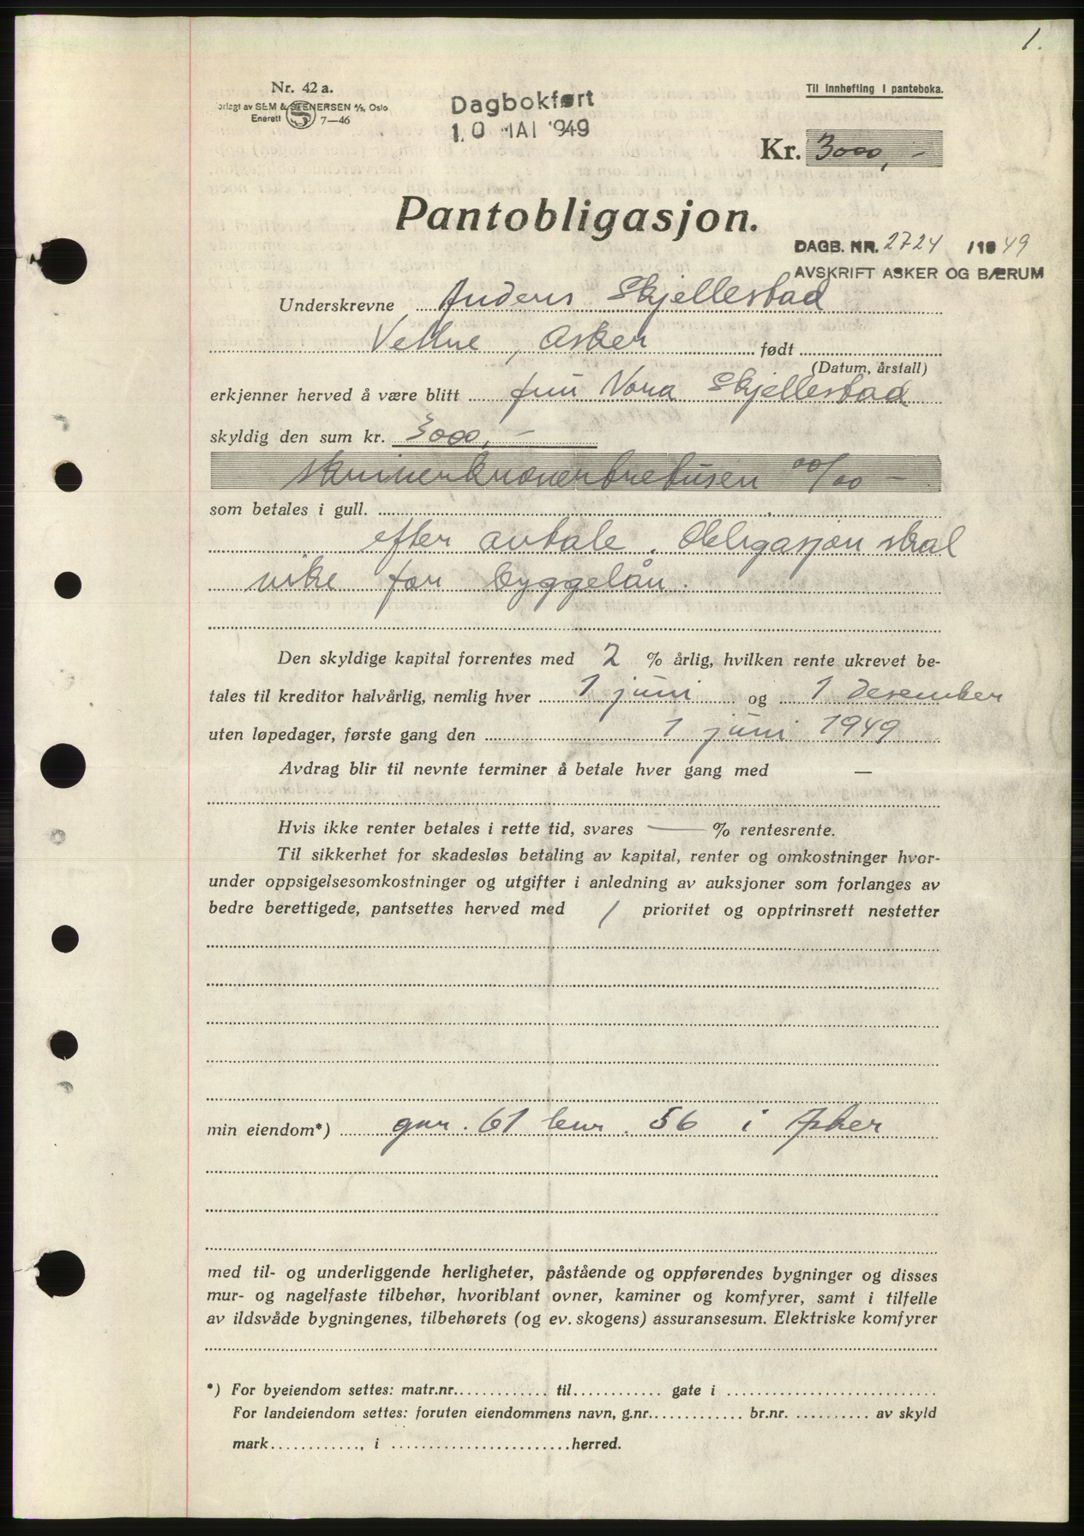 1.
Nr. 42 a.
orlagt av SEM & STENERSEN A/S, Oslo
Enerett 7—46
Dagbokført
10 MAI 1949
Til innhefting i panteboka.
Kr. 3000,-
Pantobligasjon.
DAGB. NR. 2724 /1949
AVSKRIFT ASKER OG BÆRUM
Underskrevne Anders Skjellestad
Vettre, Asker født
(Datum, årstall)
erkjenner herved å være blitt fru Nora Skjellestad
skyldig den sum kr. 3000,-
skriverkronertretusen 00/00 -
som betales i gull.
efter avtale. Obligasjon skal
vike for byggelån.
Den skyldige kapital forrentes med 2 % årlig, hvilken rente ukrevet be-
tales til kreditor halvårlig, nemlig hver 1 juni og 1 desember
uten løpedager, første gang den 1 juni 1949
Avdrag blir til nevnte terminer å betale hver gang med —
Hvis ikke renter betales i rette tid, svares — % rentesrente.
Til sikkerhet for skadesløs betaling av kapital, renter og omkostninger hvor-
under oppsigelsesomkostninger og utgifter i anledning av auksjoner som forlanges av
bedre berettigede, pantsettes herved med 1 prioritet og opptrinsrett nestetter
min eiendom*) gnr. 61 bnr. 56 i Asker
med til- og underliggende herligheter, påstående og oppførendes bygninger og disses
mur- og nagelfaste tilbehør, hvoriblant ovner, kaminer og komfyrer, samt i tilfelle
av ildsvåde bygningenes, tilbehørets (og ev. skogens) assuransesum. Elektriske komfyrer
*) For byeiendom settes: matr.nr. ............ til............ gate i ............................
For landeiendom settes: foruten eiendommens navn, g.nr............. br.nr. .......... av skyld
mark............, i ........................herred.